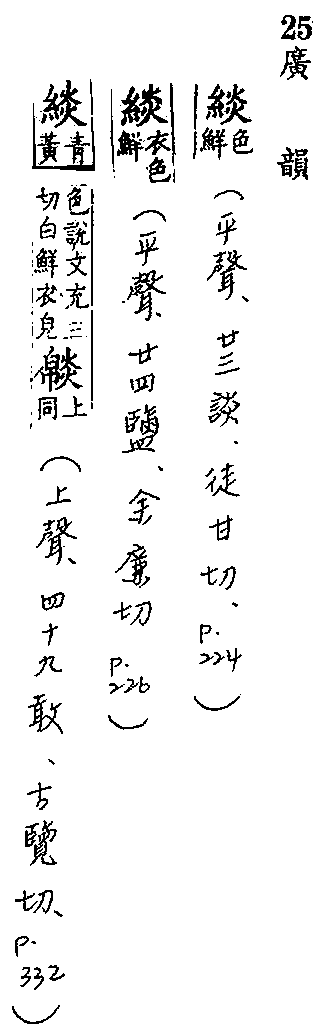 25廣韻
緂色鮮(平聲、廿三談、徒甘切、p.224)
緂衣色鮮(平聲、廿四鹽、余廉切p.226)
緂青黃色說文充三切白鮮衣皃㒈上同(上聲、四十九敢、古覽切、p.332)